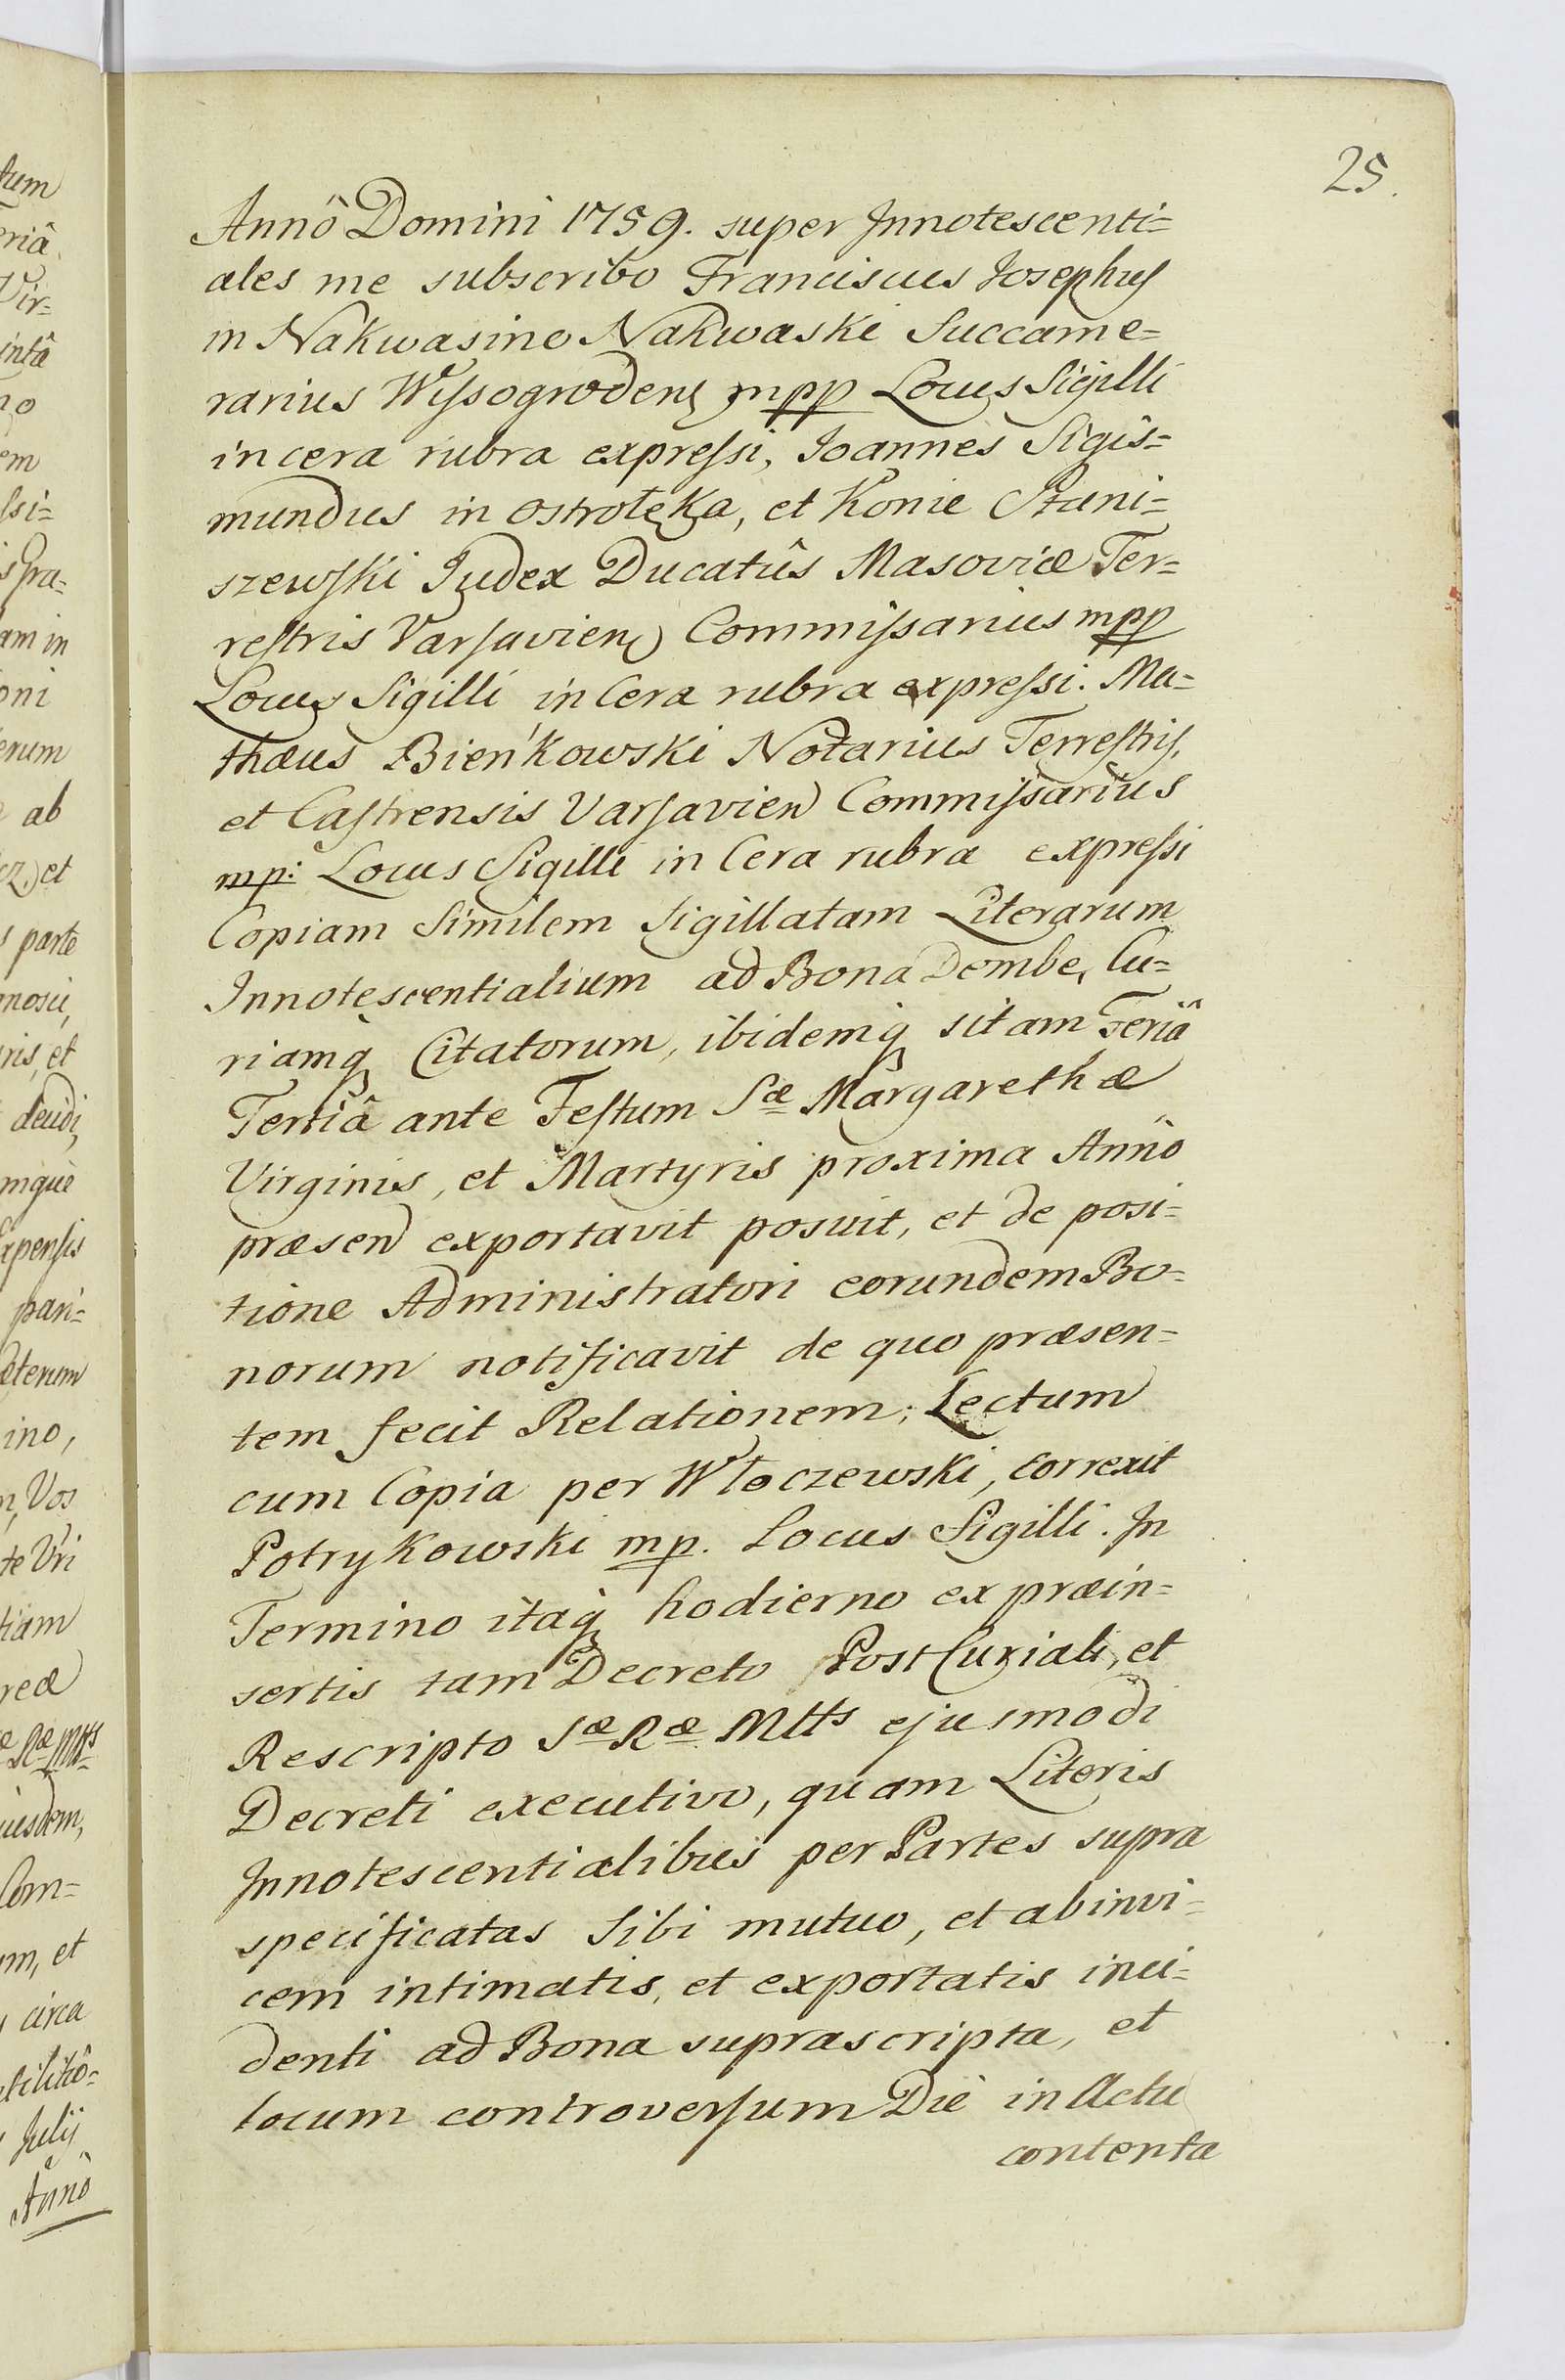 25.
Annô Domini 1759. super Innotescenti=
ales me subscribo Franciscus Josephus
in Nakwasino Nakwaski Succame=
rarius Wissogrodens mpp Locus Sigilli
in cera rubra expressi, Joannes Sigis=
mundus in Ostrołęka, et Konie Stani=
szewski Judex Ducatûs Masoviæ Ter=
restris Varsaviens Commissarius mpp
Locus Sigilli in Cera rubra expressi. Ma=
thæus Bieńkowski Notarius Terrestris,
et Castrensis Varsavien Commissarius
mp: Locus Sigilli in Cera rubra expressi
Copiam Similem Sigillatam Literarum
Innotescentialium ad Bona Dembe, Cu=
riamq Citatorum, ibidemq sitam Feriâ
Tertiâ ante Festum Sæ Margarethæ
Virginis, et Martyris proxima Annô
præsen exportavit posuit, et de posi=
tione Administratori eorundem Bo=
norum notificavit de quo præsen=
tem fecit Relationem; Lectum
cum Copia per Włoczewski, correxit
Potrykowski mp. Locus Sigilli. In
Termino itaq hodierno ex præin=
sertis tam Decreto Post Curiali, et
Rescripto Sæ Ræ Mtts ejusmodi
Decreti executivo, quam Literis
Innotescentialibus per Partes supra
specificatas Sibi mutuo, et ab invi=
cem intimatis, et exportatis inci=
denti ad Bona suprascripta, et
locum controversum Die in Actu
contenta
tum
eriâ
Vir=
intâ
no
em
ssi=
am in
oni
erum
ab
cz.) et
parte
ris, et
mque
expensis
pari=
ino,
Vos
te Vri
tiam
Ræ Mtts
Com=
um, et
circa
Julij
Annô